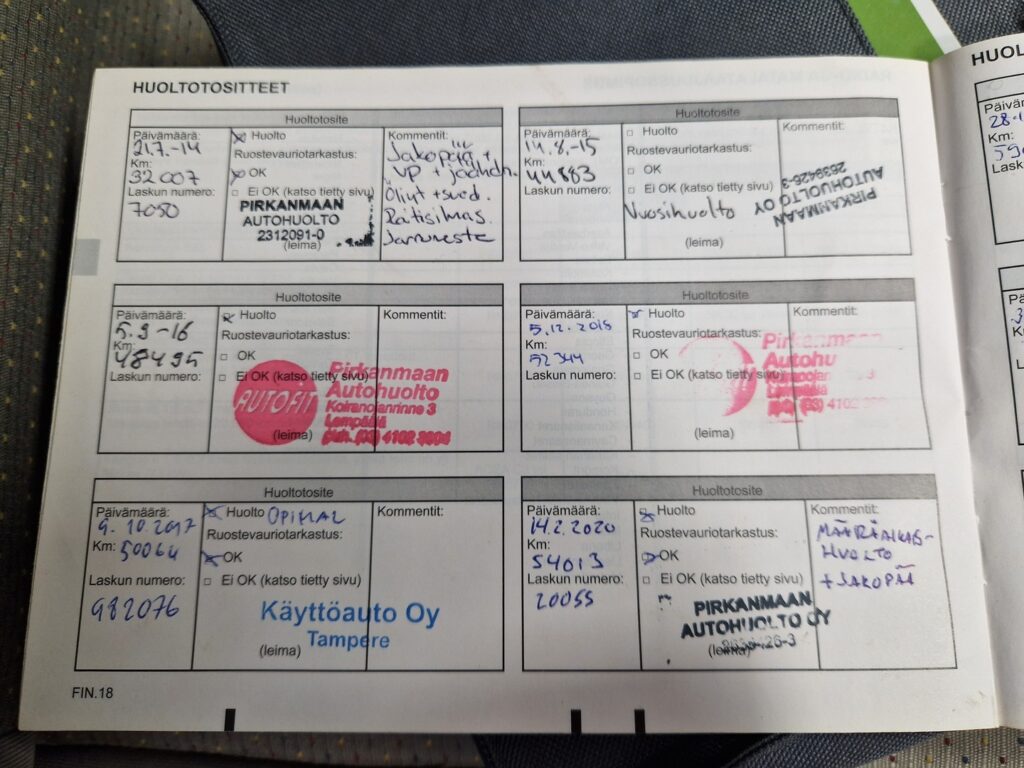 HUOLTOTOSITTEET
Huoltotosite
Päivämäärä:
21.7.-14
Km:
32007
Laskun numero:
7050
Huolto
Ruostevauriotarkastus:
OK
Ei OK (katso tietty sivu)
PIRKANMAAN
AUTOHUOLTO
2312091-0
(leima)
Kommentit:
Jakopää +
VP + jäähdn.
Öljyt + suod.
Raitisilmas.
Jarruneste
Huoltotosite
Päivämäärä:
14.8.-15
Km:
44883
Laskun numero:
Huolto
Ruostevauriotarkastus:
OK
Ei OK (katso tietty sivu)
Vuosihuolto
(leima)
Kommentit:
PIRKANMAAN
AUTOHUOLTO OY
2639426-3
Huoltotosite
Päivämäärä:
5.9-16
Km:
48495
Laskun numero:
Huolto
Ruostevauriotarkastus:
OK
Ei OK (katso tietty sivu)
AUTOFIT
Pirkanmaan
Autohuolto
Koiranojanrinne 3
Lempäälä
puh. (03) 4102
(leima)
Kommentit:
Huoltotosite
Päivämäärä:
5.12.2018
Km:
52344
Laskun numero:
Huolto
Ruostevauriotarkastus:
OK
Ei OK (katso tietty sivu)
Autohu
(03) 4102
(leima)
Kommentit:
Huoltotosite
Päivämäärä:
9.10.2017
Km:
50064
Laskun numero:
982076
Huolto OPIMAL
Ruostevauriotarkastus:
OK
Ei OK (katso tietty sivu)
Käyttöauto Oy
Tampere
(leima)
Kommentit:
Huoltotosite
Päivämäärä:
14.2.2020
Km:
54013
Laskun numero:
20055
Huolto
Ruostevauriotarkastus:
OK
Ei OK (katso tietty sivu)
PIRKANMAAN
AUTOHUOLTO OY
(leima)
Kommentit:
MÄÄRÄAIKAIS-
HUOLTO
+ JAKOPÄÄ
FIN.18